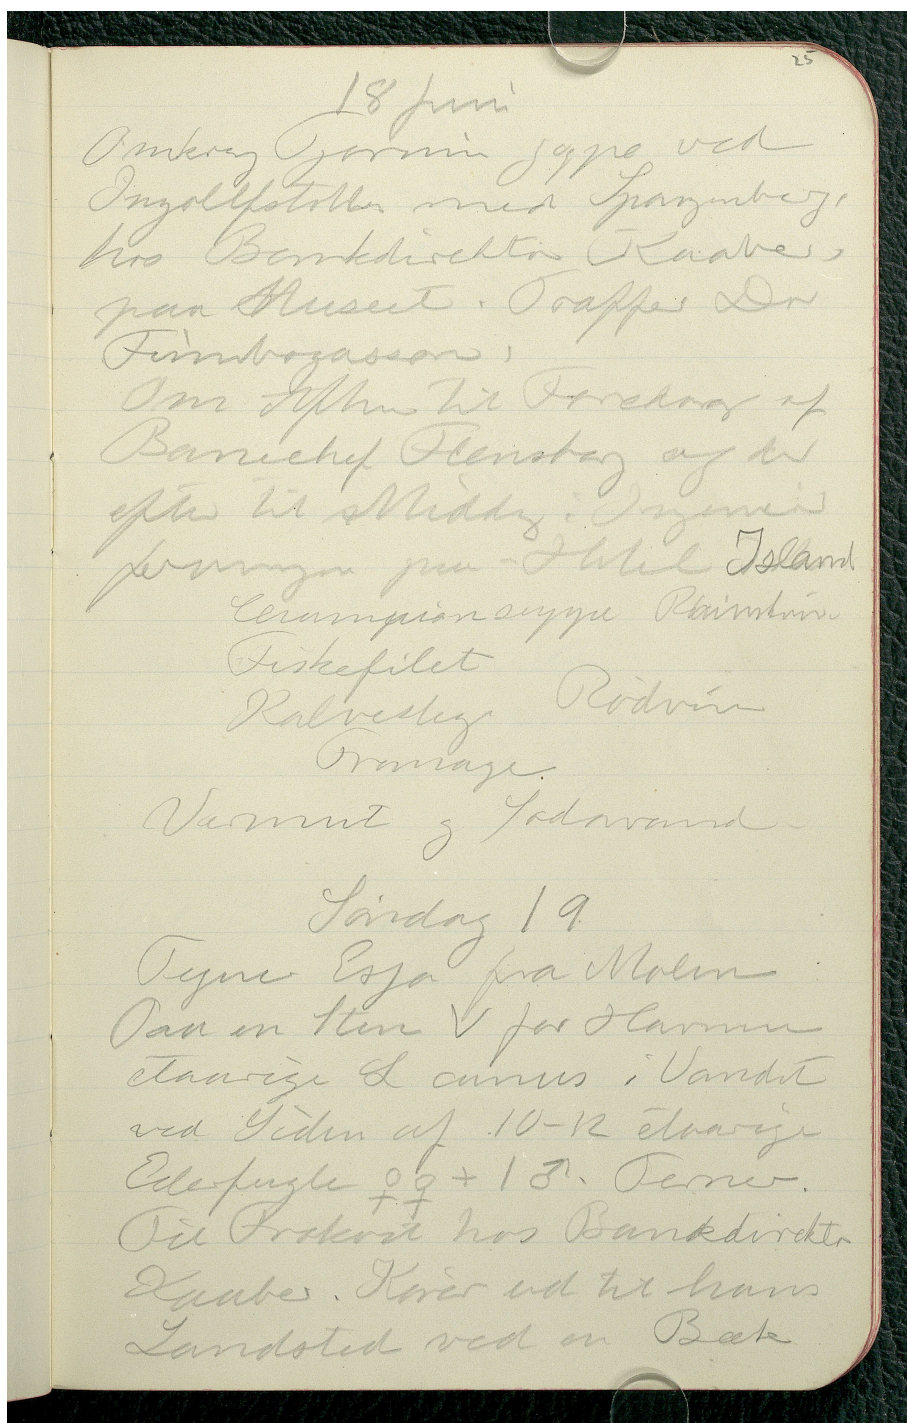 25
18 Juni
Omkring Tjørnin Jagpo ved
Ingolffstotten med Spangenberg,
hos Bankdirektør Kaaber,
paa Museet. Træffer Dr
Finnbogasson,
Om Aften til Foredrag af
Banechef Flensborg og der
efter til Middag i Ingeniør
foreningen paa Hotel Island
Champion suppe Rhinskvin
Fiskefilet
Kalvesteg Rødvin
Fromage.
Vermut og Sodavand
Søndag 19
Tegner Esja fra Molen
Paa en Sten V for Havnen
etaarige L canus i Vandet
ved Siden af 10-12 etaarige
Ederfugle ♀♀ + 1 ♂. Terner.
Til Frokost hos Bankdirektør
Kaaber. Kører ud til hans
Landsted ved en Bæk